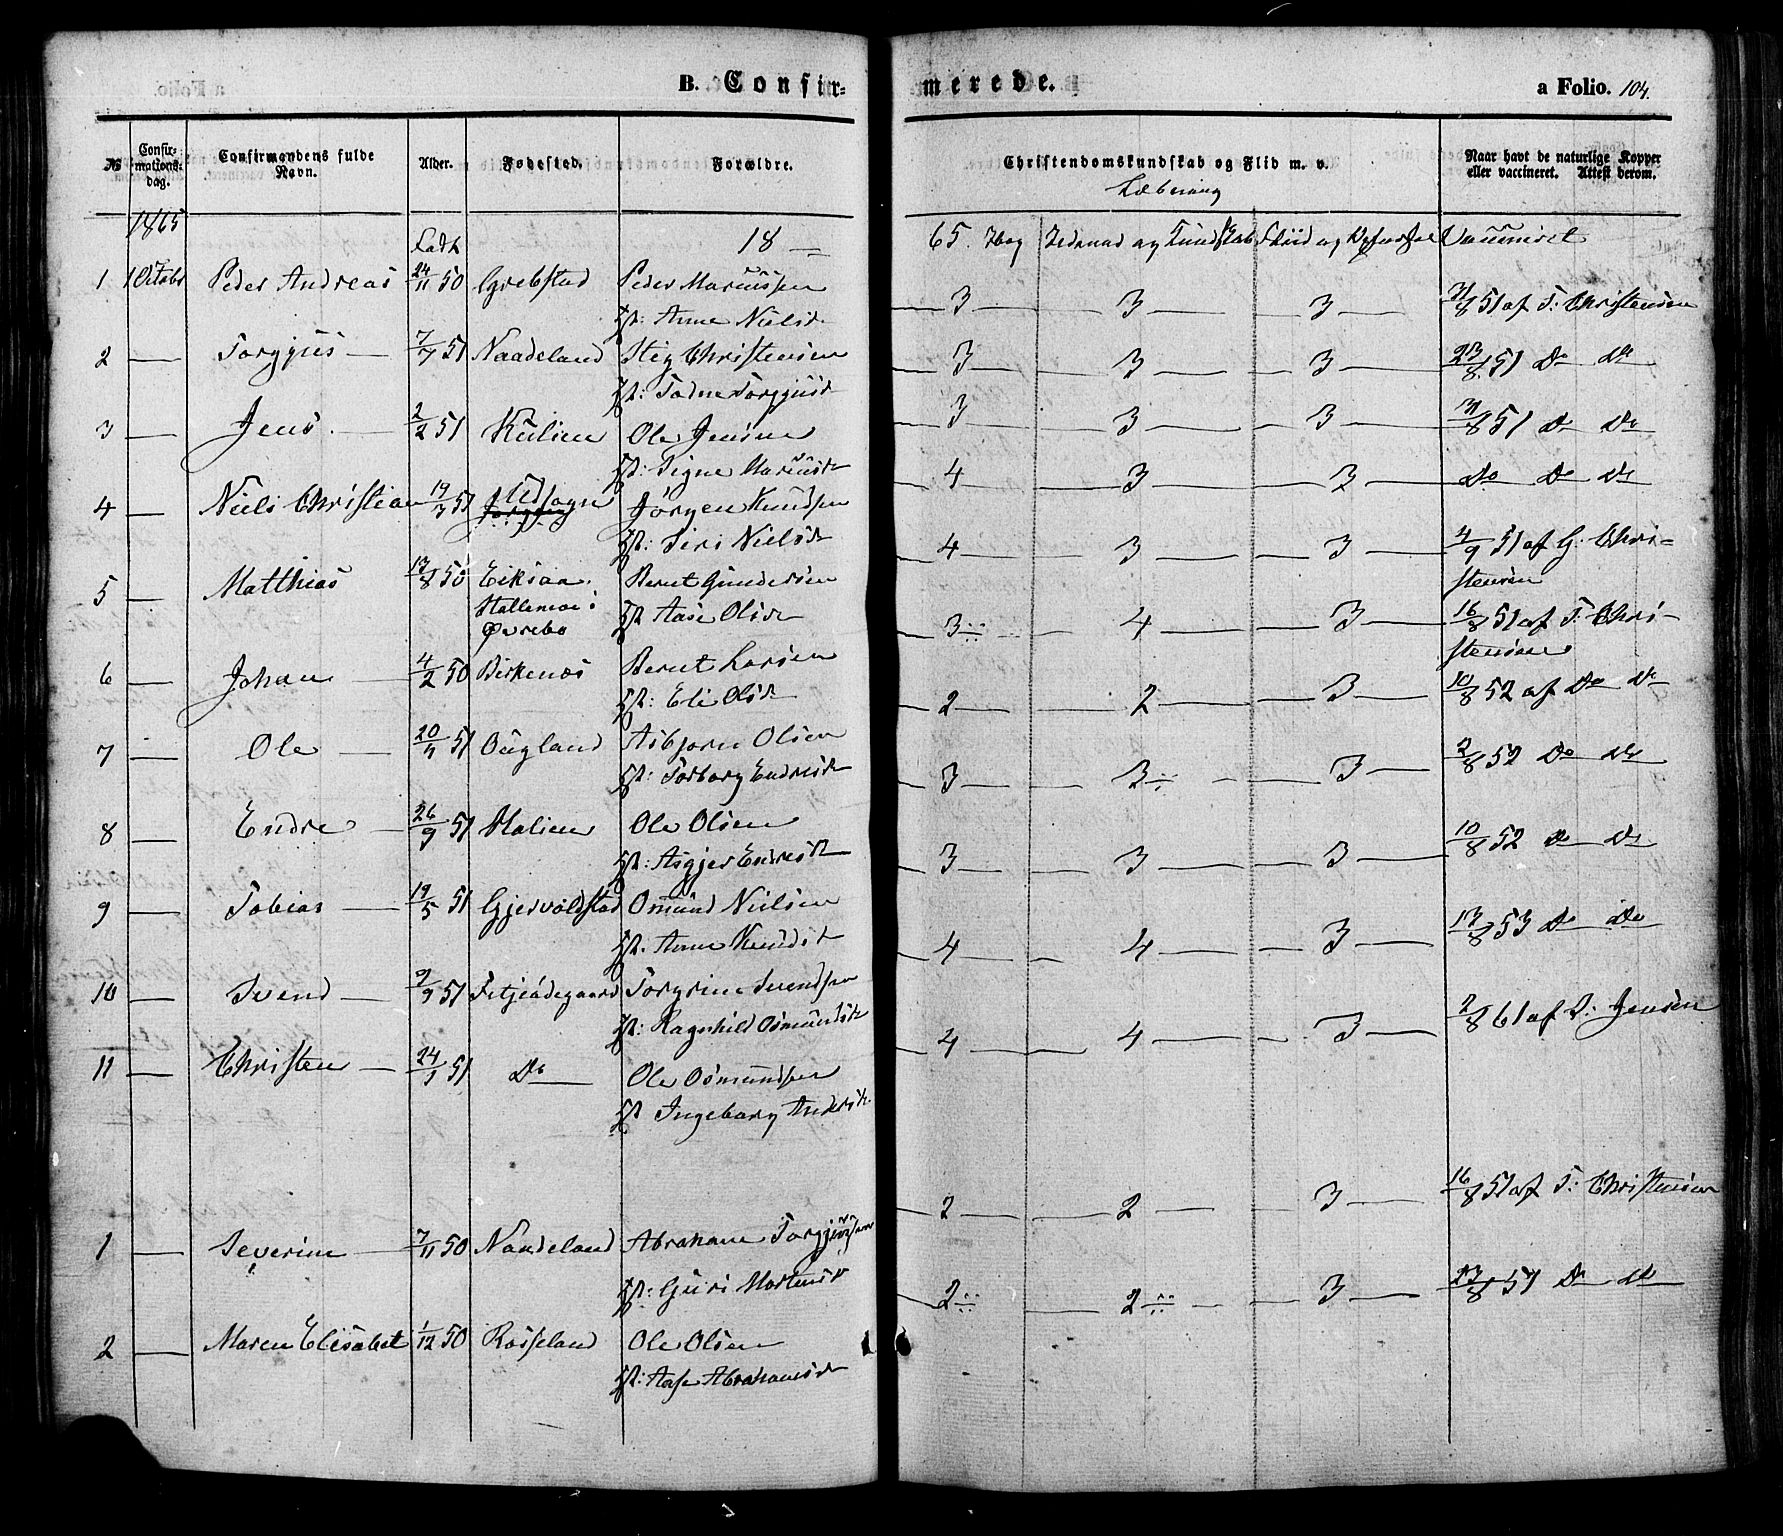 B. Confir-
merede.
a Folio. 104.
№
Confir-
mations-
dag.
Confirmandens fulde
Navn.
Alder.
Fødested.
Forældre.
Christendomskundskab og Flid m. v.
Naar havt de naturlige Kopper
eller vaccineret. Attest derom.
Læbning
1865
Født
18 —
65. og Kundskab Fliid og Vaccineret
1 1 Octobr Peder Andreas 24/11 50 Grebstad Peder Marcussen
H: Anne Nielsd
3 — 3 — 3 — 31/8 51 af T: Christensen
2 — Torgjus — 7/7 51 Naadeland Stig Christensen
H: Todne Torgjusd
3 — 3 — 3 23/8 51 Do Do
3 — Jens — 2/2 51 Kulien Ole Jensen
H: Signe Marcusd
3 — 3 — 3 31/8 51 Do Do
4 — Niels Christian 19/3 51 Jørgen Knudsen
H: Siri Nielsd
4 — 3 — 3 Do Do Do
5 — Matthias 13/8 50 Eiksaa
Hallemoe i
Øvrebø
Bernt Gundersen
H: Aase Olsd
4 — 3 — 3 4/9 51 af G: Chri-
stensen
6 — Johan — 4/2 50 Birkenæs Bernt Larsen
H: Eli Olsd
3 — 4 — 3 16/8 51 af T: Chri-
stensen
7 — Ole — 20/4 51 Ougland Asbjorn Olsen
H: Torborg Endresd
2 — 2 — 3 — 10/8 52 af Do Do
8 — Endre — 26/9 51 Stalien Ole Olsen
H: Asgjer Endresd
3 — 3 — 3 — 2/8 52 Do Do
9 — Tobias — 19/5 51 Gjervoldstad Osmund Nielsen
H: Anne Knudsd
3 — 3 — 3 — 10/8 52 Do Do
10 — Svend — 9/9 51 Fitjeødegaard Torgrim Svendsen
H: Ragnhild Osmundsd
4 — 4 — 3 — 13/8 53 Do Do
11 — Christen — 24/1 51 Do — Ole Osmundsen
H: Ingeborg Andersd
4 — 4 — 3 — 2/8 61 af D: Jensen
1 — Severine — 7/11 50 Naadeland Abraham Torgjussen
H: Guri Mortensd
2 — 2 — 3 — 16/8 51 af T: Christensen
2 — Maren Elisabet 1/12 50 Rosseland Ole Olsen
H: Aase Abrahamsd
2 — 2 — 3 — 23/8 51 Do Do